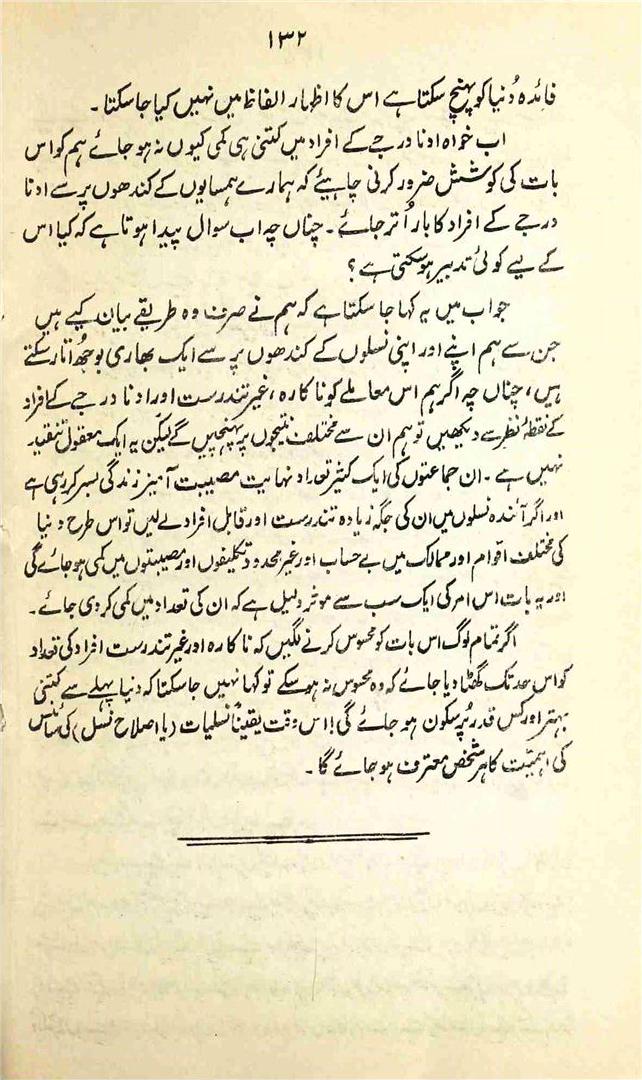 ۱۳۲
فائدہ دُنیا کو پہنچ سکتا ہے اس کا اظہار الفاظ میں نہیں کیا جا سکتا۔
اب خواہ ادنا درجے کے افراد میں کتنی ہی کمی کیوں نہ ہو جائے ہم کو اس
بات کی کوشش ضرور کرنی چاہیئے کہ ہمارے ہمسایوں کے کندھوں پر سے ادنا
درجے کے افراد کا بار اُتر جائے۔ چناں چہ اب سوال پیدا ہوتا ہے کہ کیا اس
کے لیے کوئی تدبیر ہو سکتی ہے؟
جواب میں یہ کہا جا سکتا ہے کہ ہم نے صرف وہ طریقے بیان کیے ہیں
جن سے ہم اپنے اور اپنی نسلوں کے کندھوں پر سے ایک بھاری بوجھ اتار سکتے
ہیں، چناں چہ اگر ہم اس معاملے کو ناکارہ، غیر تندرست اور ادنا درجے کے افراد
کے نقطۂ نظر سے دیکھیں تو ہم ان سے مختلف نتیجوں پر پہنچیں گے لیکن یہ ایک معقول تنقید
نہیں ہے۔ ان جماعتوں کی ایک کثیر تعداد نہایت مصیبت آمیز زندگی بسر کر رہی ہے
اور اگر آئندہ نسلوں میں ان کی جگہ زیادہ تندرست اور قابل افراد لے لیں تو اس طرح دنیا
کی مختلف اقوام اور ممالک میں بے حساب اور غیر محدود تکلیفوں اور مصیبتوں میں کمی ہو جائے گی
اور یہ بات اس امر کی ایک سب سے موثر دلیل ہے کہ ان کی تعداد میں کمی کر دی جائے۔
اگر تمام لوگ اس بات کو محسوس کرنے لگیں کہ ناکارہ اور غیر تندرست افراد کی تعداد
کو اس حد تک گھٹا دیا جائے کہ وہ محسوس نہ ہو سکے تو کہا نہیں جا سکتا کہ دنیا پہلے سے کتنی
بہتر اور کس قدر پُر سکون ہو جائے گی! اس وقت یقیناً نسلیات (یا اصلاح نسل) کی سائنس
کی اہمیّت کا ہر شخص معترف ہو جائے گا۔